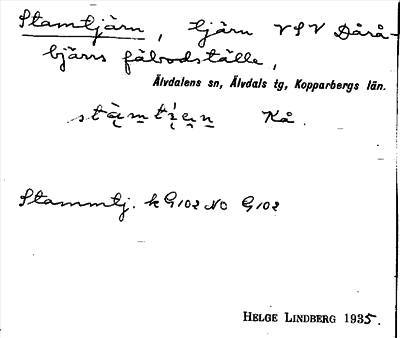 Stamtjärn, tjärn VSV Dårå-
bjärs fäbodställe,
Älvdalens sn, Älvdals tg, Kopparbergs län.
Kå.
Stammtj. k G102 NO G102
HELGE LINDBERG 1935.